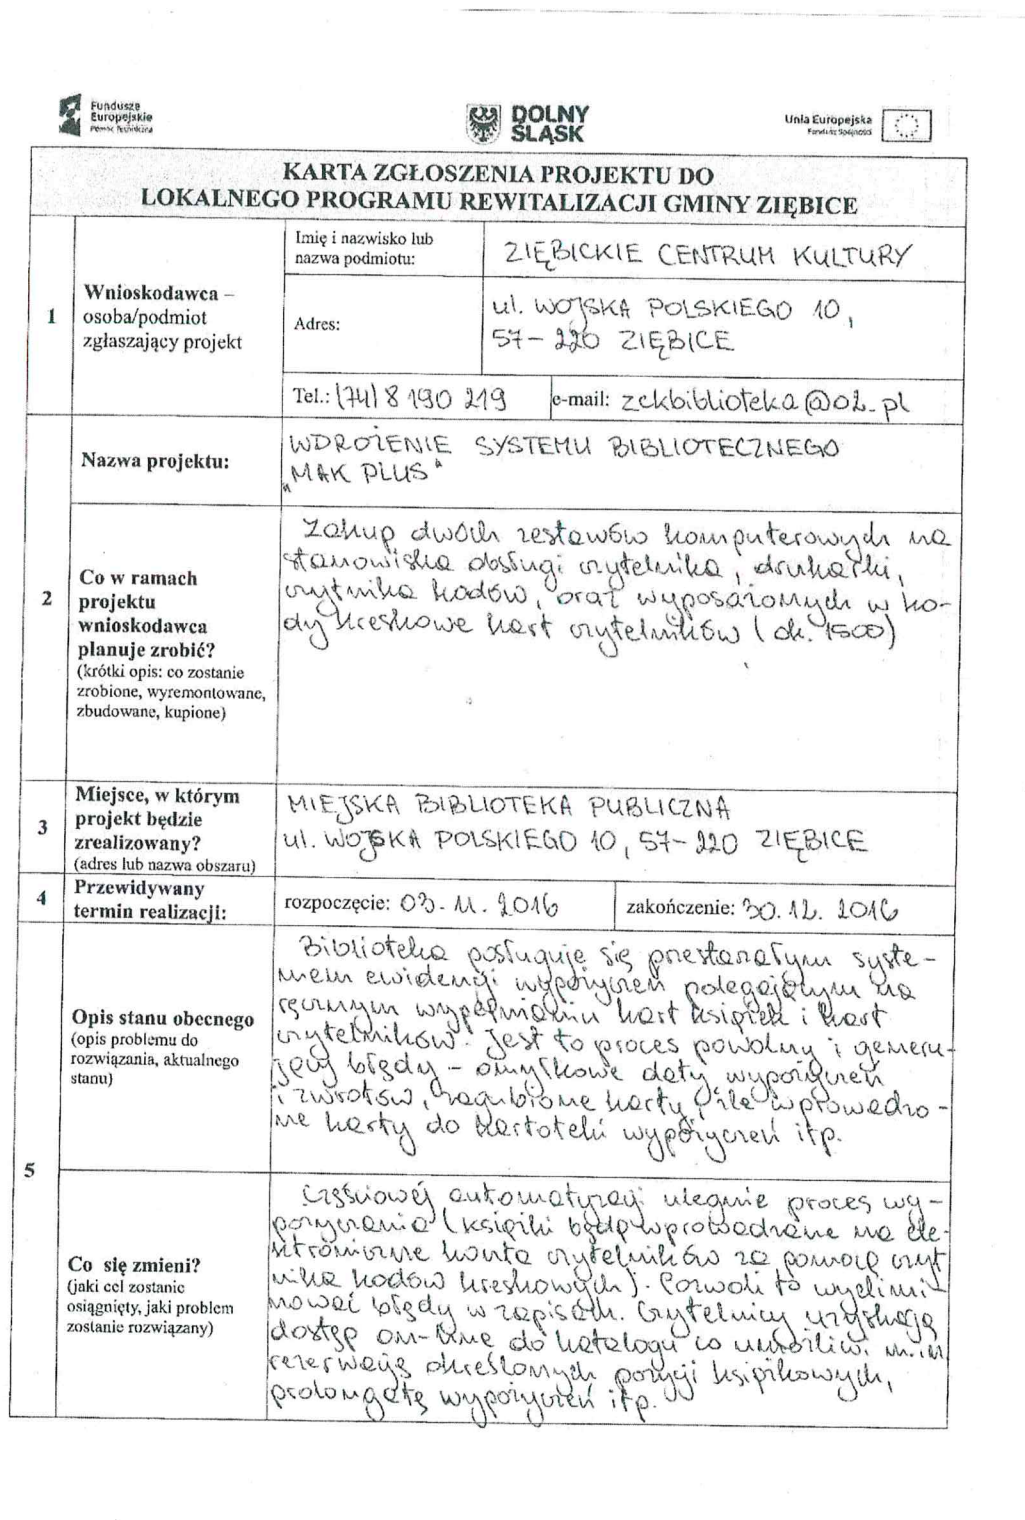 Fundusze
Europejskie
Pomoc Techniczna
DOLNY
ŚLĄSK
Unia Europejska
Fundusz Spójności
KARTA ZGŁOSZENIA PROJEKTU DO
LOKALNEGO PROGRAMU REWITALIZACJI GMINY ZIĘBICE
1
Wnioskodawca –
osoba/podmiot
zgłaszający projekt
Imię i nazwisko lub
nazwa podmiotu:
ZIĘBICKIE CENTRUM KULTURY
Adres:
ul. WOJSKA POLSKIEGO 10,
57-220 ZIĘBICE
Tel.: (74) 8 190 219
e-mail: zckbiblioteka@o2.pl
2
Nazwa projektu:
WDROŻENIE SYSTEMU BIBLIOTECZNEGO
„MAK PLUS"
Co w ramach
projektu
wnioskodawca
planuje zrobić?
(krótki opis: co zostanie
zrobione, wyremontowane,
zbudowane, kupione)
Zakup dwóch zestawów komputerowych na
stanowiska obsługi czytelnika, drukarki,
czytnika kodów, oraz wyposażonych w ko-
dy kreskowe kart czytelników (ok. 1500)
3
Miejsce, w którym
projekt będzie
zrealizowany?
(adres lub nazwa obszaru)
MIEJSKA BIBLIOTEKA PUBLICZNA
ul. WOJSKA POLSKIEGO 10, 57-220 ZIĘBICE
4
Przewidywany
termin realizacji:
rozpoczęcie: 03.11.2016
zakończenie: 30.12.2016
5
Opis stanu obecnego
(opis problemu do
rozwiązania, aktualnego
stanu)
Biblioteka posługuje się przestarzałym syste-
mem ewidencji wypożyczeń polegającym na
ręcznym wypełnianiu kart książek i kart
czytelników. Jest to proces powolny i generu-
jący błędy - omyłkowe daty wypożyczeń
i zwrotów, zagubione karty, źle wprowadzo-
ne karty do kartoteki wypożyczeń itp.
Co się zmieni?
(jaki cel zostanie
osiągnięty, jaki problem
zostanie rozwiązany)
Częściowej automatyzacji ulegnie proces wy-
pożyczania (książki będą wprowadzane na ele-
ktroniczne konta czytelników za pomocą czyt
nika kodów kreskowych). Pozwoli to wyelimi-
nować błędy w zapisach. Czytelnicy uzyskają
dostęp on-line do katalogu co umożliwi m.in
rezerwację określonych pozycji książkowych,
prolongatę wypożyczeń itp.